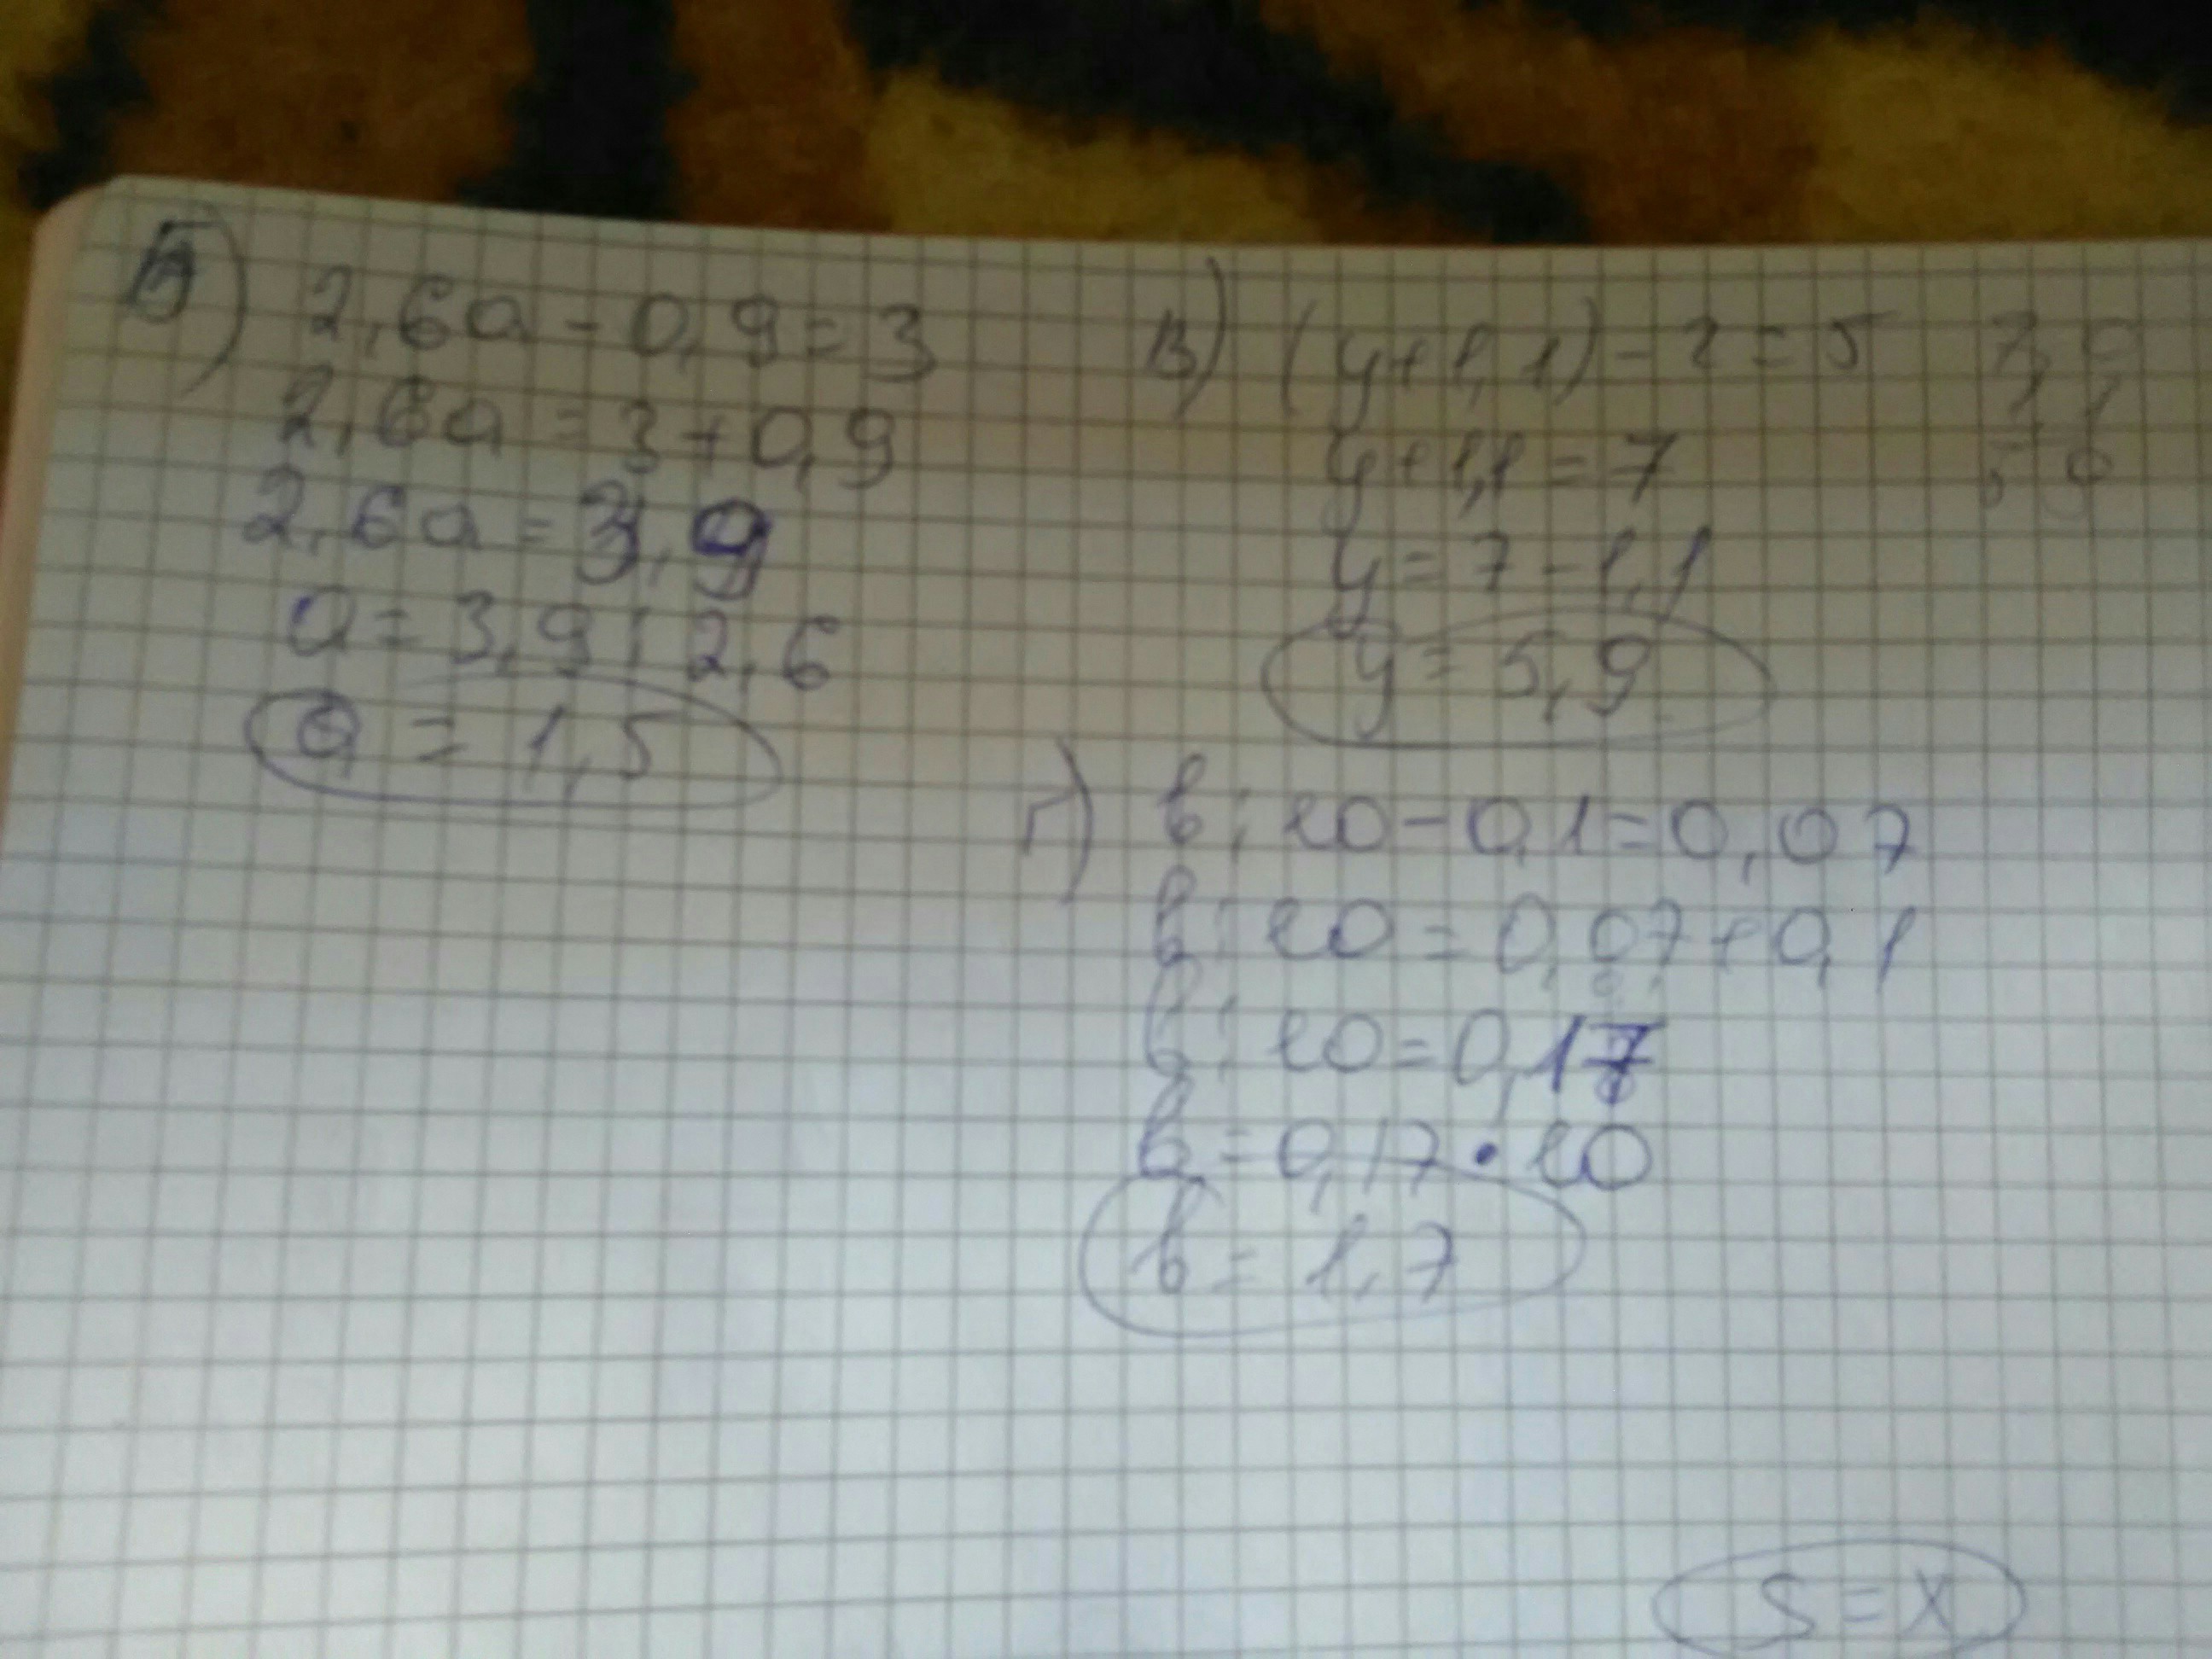 Б) 2,6a - 0,9 = 3
2,6a = 3 + 0,9
2,6a = 3,9
a = 3,9 : 2,6
a = 1,5
В) (y + 1,1) - 2 = 5
y + 1,1 = 7
y = 7 - 1,1
y = 5,9
Г) b : 10 - 0,1 = 0,07
b : 10 = 0,07 + 0,1
b : 10 = 0,17
b = 0,17 • 10
b = 1,7
5 = x